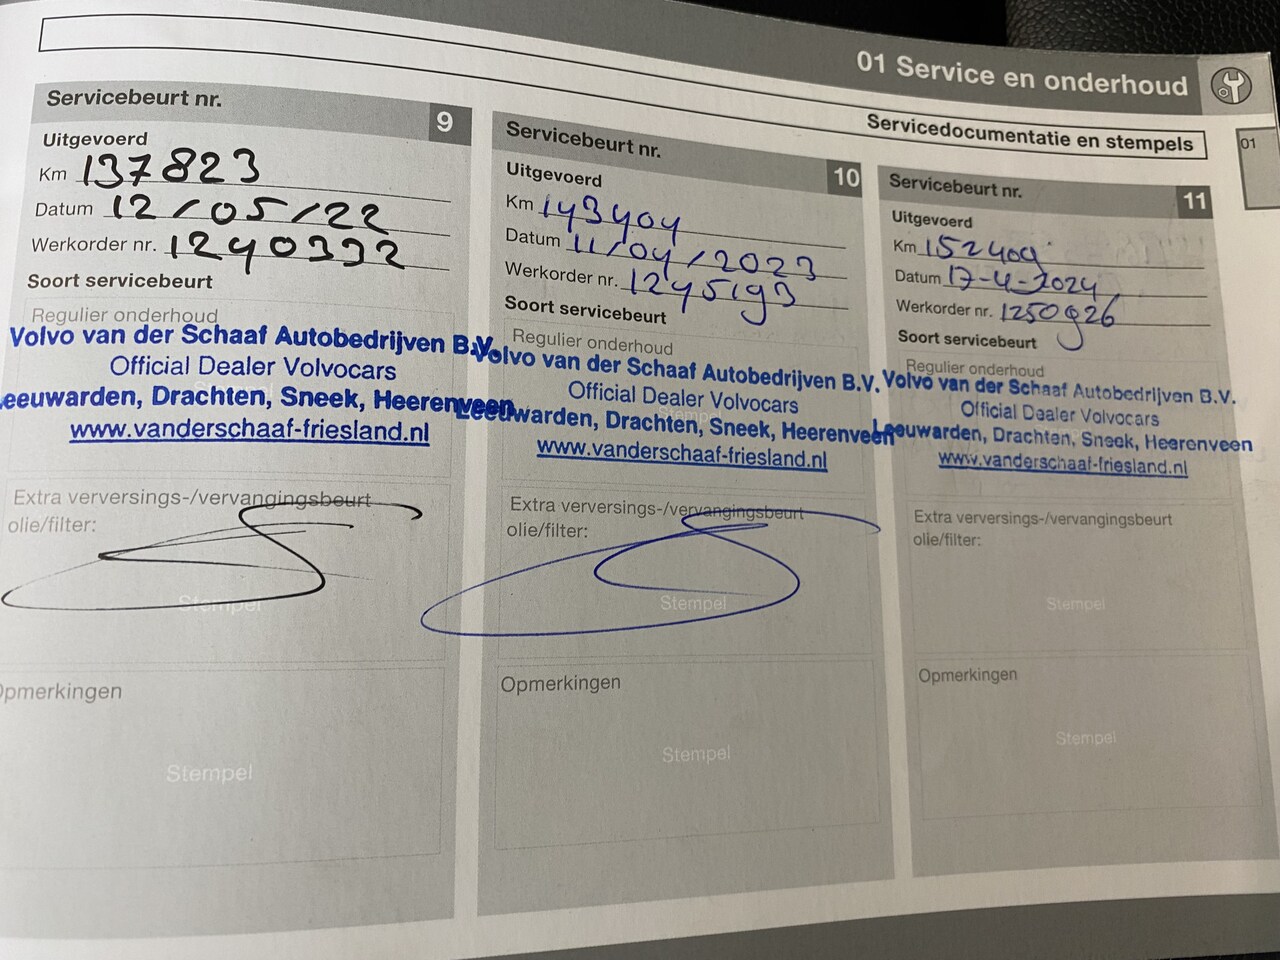 01 Service en onderhoud
01
Servicedocumentatie en stempels
Servicebeurt nr. 9
Uitgevoerd
Km 137823
Datum 12/05/22
Werkorder nr. 1240332
Soort servicebeurt
Regulier onderhoud
Volvo van der Schaaf Autobedrijven B.V.
Official Dealer Volvocars
Leeuwarden, Drachten, Sneek, Heerenveen
www.vanderschaaf-friesland.nl
Extra verversings-/vervangingsbeurt
olie/filter:
Stempel
Opmerkingen
Stempel
Servicebeurt nr. 10
Uitgevoerd
Km 143404
Datum 11/04/2023
Werkorder nr. 1245193
Soort servicebeurt
Regulier onderhoud
Volvo van der Schaaf Autobedrijven B.V.
Official Dealer Volvocars
Leeuwarden, Drachten, Sneek, Heerenveen
www.vanderschaaf-friesland.nl
Extra verversings-/vervangingsbeurt
olie/filter:
Stempel
Opmerkingen
Stempel
Servicebeurt nr. 11
Uitgevoerd
Km 152409
Datum 17-4-2024
Werkorder nr. 1250926
Soort servicebeurt
Regulier onderhoud
Volvo van der Schaaf Autobedrijven B.V.
Official Dealer Volvocars
Leeuwarden, Drachten, Sneek, Heerenveen
www.vanderschaaf-friesland.nl
Extra verversings-/vervangingsbeurt
olie/filter:
Stempel
Opmerkingen
Stempel